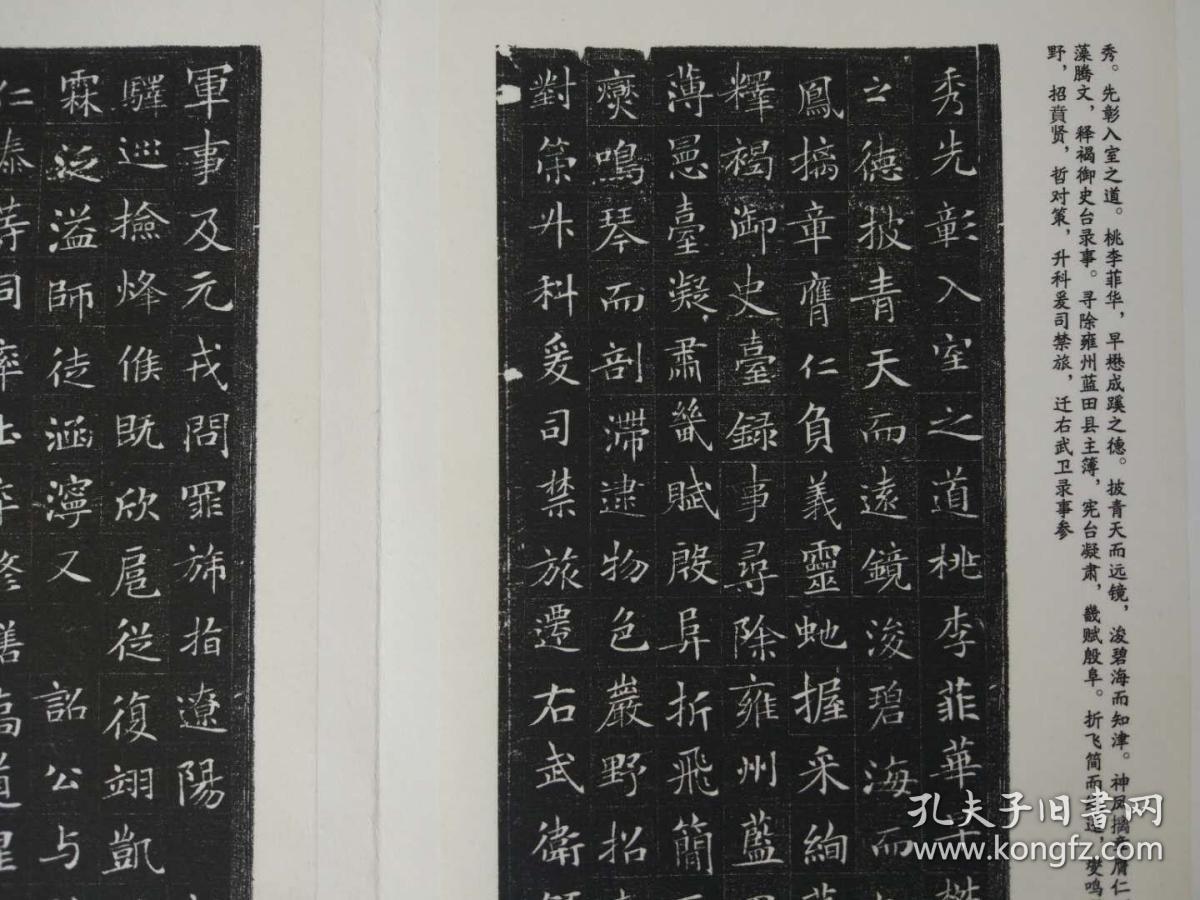 秀。先彰入室之道。桃李菲华，早懋成蹊之德。披青天而远镜，浚碧海而知津。神凤摛
藻腾文，释褐御史台录事。寻除雍州蓝田县主簿，宪台凝肃，畿赋殷阜。折飞简而
野，招贲贤，哲对策，升科爰司禁旅，迁右武卫录事参
秀先彰入室之道桃李菲華
之德披青天而遠鏡浚碧海而
鳳摛章膺仁負義靈虵握采絢
釋褐御史臺録事尋除雍州藍
薄憲臺凝肅畿賦殷阜折飛簡而
爕鳴琴而剖滯逮物色巖野招
對策升科爰司禁旅遷右武衛
軍事及元戎問罪旆指遼陽
驛巡撿烽候既欣扈從復翊凱
霖泛溢師徒涵濘又詔公与
仁泰等同率
孔夫子旧書网
www.kongfz.com